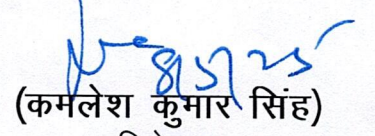 8/5/25
(कमलेश कुमार सिंह)